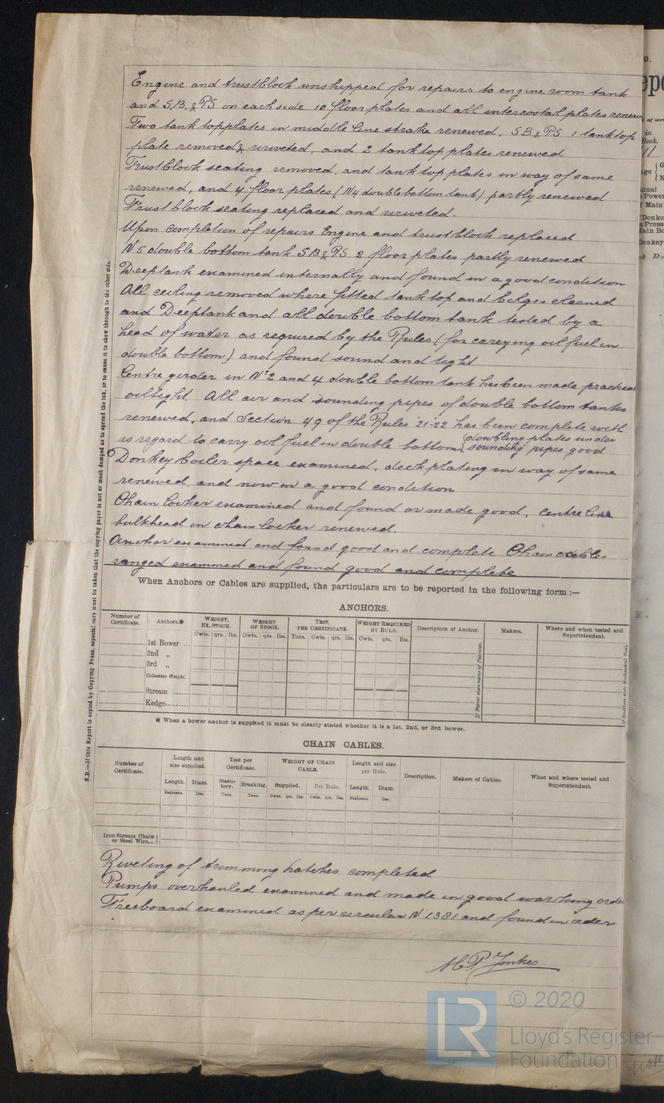 Engine and trustblock unshipped for repairs to engine room tank
and S.B. & P.S. on each side 10 floor plates and all intercostal plates renew
Two tank topplates in middle line strake renewed. S.B & P.S 1 tanktop
plate removed & riveted, and 2 tanktop plates renewed
Trustblock seating removed, and tanktop plates in way of same
renewed, and 4 floor plates (N4 double bottom tank) partly renewed
Trust block seating replaced and riveted.
Upon completion of repairs Engine and trustblock replaced
N5 double bottom tank S.B & P.S 2 floor plates partly renewed
Deeptank examined internally and found in a good condition
All ceiling removed where fitted tanktop and bilges cleaned
and Deeptank and all double bottom tank tested by a
head of water as required by the Rules (for carrying oil fuel in
double bottom) and found sound and tight
Centre girder in N°2 and 4 double bottom tank has been made practical
oiltight. All air and sounding pipes of double bottom tanks
renewed, and Section 49 of the Rules 21-22 has been complete with
doubling plates under
is regard to carry oil fuel in double bottom, sounding pipes good
Donkey boiler space examined, deck plating in way of same
renewed, and now in a good condition
Chain locker examined and found or made good, centre line
bulkhead in chain locker renewed.
Anchor examined and found good and complete Chain cables
ranged examined and found good and complete
When Anchors or Cables are supplied, the particulars are to be reported in the following form :—
ANCHORS.
Number of Certificate. Anchors.* WEIGHT, EX. STOCK. WEIGHT OF STOCK. TEST, PER CERTIFICATE. WEIGHT REQUIRED BY RULE. Description of Anchor. Makers. Where and when tested and Superintendent.
Cwts. qrs. lbs. Cwts. qrs. lbs. Tons. Cwts. qrs. lbs. Cwts. qrs. lbs.
1st Bower ...
2nd „
3rd „
Collective Weight.
Stream ......
Kedge.........
* When a bower anchor is supplied it must be clearly stated whether it is a 1st, 2nd, or 3rd bower.
CHAIN CABLES.
Number of Certificate. Length and size supplied. Test per Certificate. WEIGHT OF CHAIN CABLE. Length and size per Rule. Description. Makers of Cables. When and where tested and Superintendent.
Length. Diam. Statutory. Breaking. Supplied. Per Rule. Length. Diam.
Fathoms. Ins. Tons. Tons. Cwts. qrs. lbs. Cwts. qrs. lbs. Fathoms. Ins.
Iron Stream Chain or Steel Wire...
Riveting of trimming hatches completed
Pumps overhauled examined and made in good working order
Freeboard examined as per circular N 1381 and found in order
N.B.—If this Report is copied by Copying Press, especial care must be taken that the copying paper is not so much damped as to spread the ink, or to cause it to show through to the other side.
LR © 2020
Lloyd's Register
Foundation